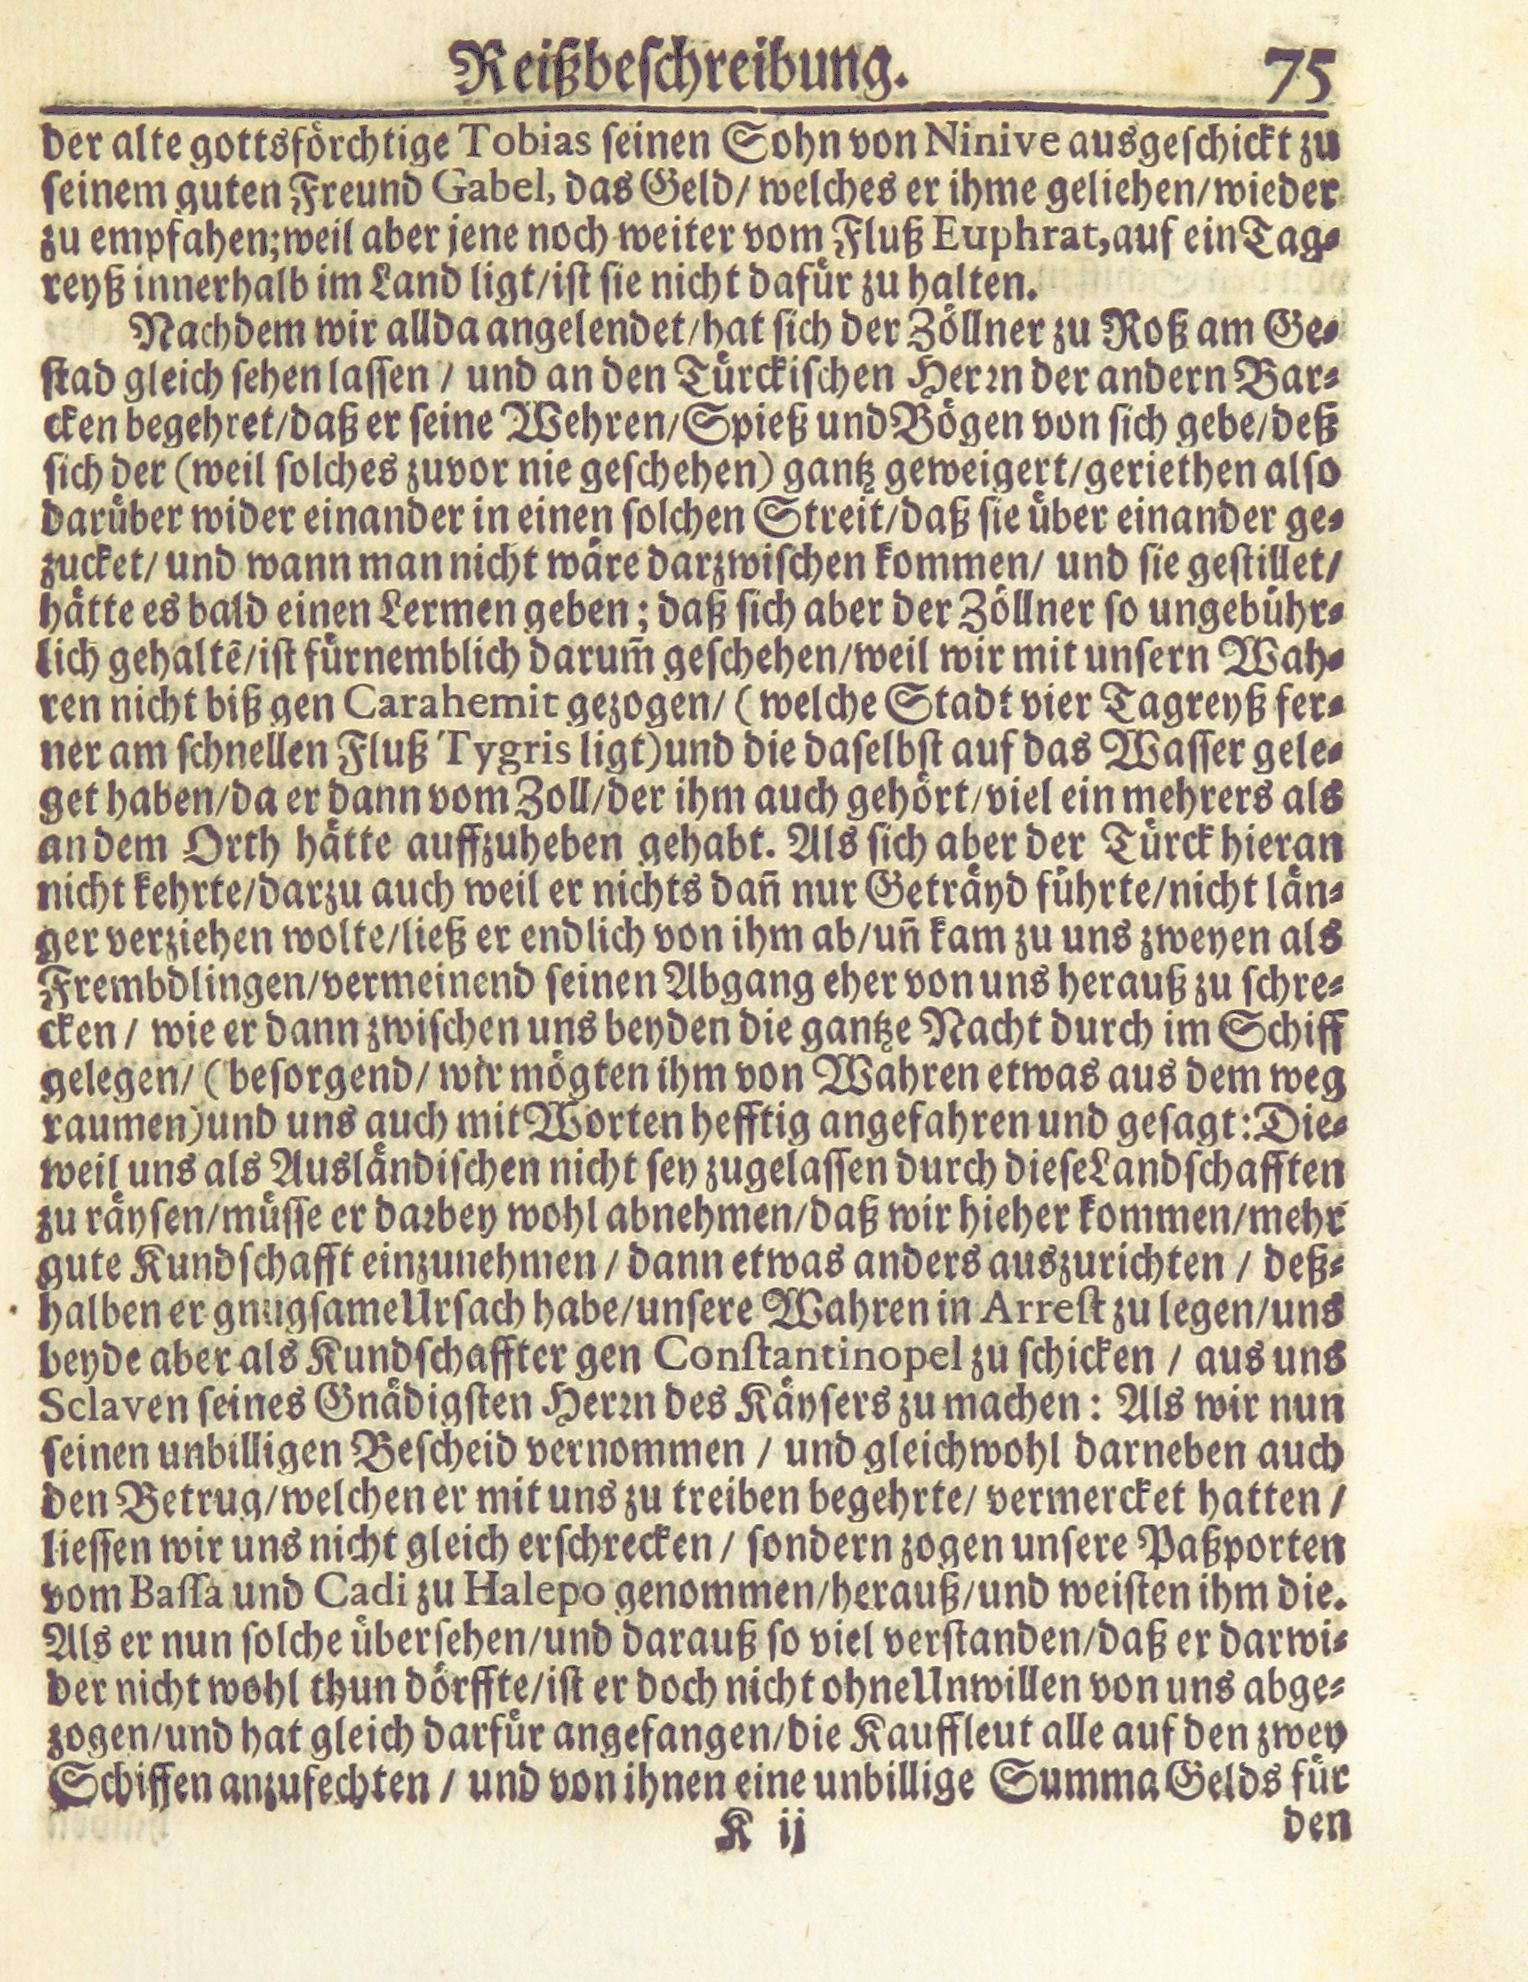 Reißbeschreibung. 75
der alte gottsförchtige Tobias seinen Sohn von Ninive ausgeschickt zu
seinem guten Freund Gabel, das Geld/ welches er ihme geliehen/wieder
zu empfahen; weil aber jene noch weiter vom Fluß Euphrat, auf ein Tag-
reyß innerhalb im Land ligt/ist sie nicht dafür zu halten.
Nachdem wir allda angelendet/hat sich der Zöllner zu Roß am Ge-
stad gleich sehen lassen / und an den Türckischen Herrn der andern Bar-
cken begehret/daß er seine Wehren/Spieß und Bögen von sich gebe/deß
sich der (weil solches zuvor nie geschehen) gantz geweigert/geriethen also
darüber wider einander in einen solchen Streit/daß sie über einander ge-
zucket/ und wann man nicht wäre darzwischen kommen/ und sie gestillet/
hätte es bald einen Lermen geben; daß sich aber der Zöllner so ungebühr-
lich gehaltē/ist fürnemblich darum̃ geschehen/weil wir mit unsern Wah-
ren nicht biß gen Carahemit gezogen/ (welche Stadt vier Tagreyß fer-
ner am schnellen Fluß Tygris ligt) und die daselbst auf das Wasser gele-
get haben/da er dann vom Zoll/der ihm auch gehört/viel ein mehrers als
an dem Orth hätte auffzuheben gehabt. Als sich aber der Türck hieran
nicht kehrte/darzu auch weil er nichts dañ nur Geträyd führte/nicht län-
ger verziehen wolte/ließ er endlich von ihm ab/uñ kam zu uns zweyen als
Frembdlingen/vermeinend seinen Abgang eher von uns herauß zu schre-
cken / wie er dann zwischen uns beyden die gantze Nacht durch im Schiff
gelegen/ (besorgend/ wir mögten ihm von Wahren etwas aus dem weg
raumen) und uns auch mit Worten hefftig angefahren und gesagt: Die-
weil uns als Ausländischen nicht sey zugelassen durch diese Landschafften
zu räysen/müsse er darbey wohl abnehmen/daß wir hieher kommen/mehr
gute Kundschafft einzunehmen / dann etwas anders auszurichten / deß-
halben er gnugsame Ursach habe/unsere Wahren in Arrest zu legen/uns
beyde aber als Kundschaffter gen Constantinopel zu schicken / aus uns
Sclaven seines Gnädigsten Herrn des Käysers zu machen: Als wir nun
seinen unbilligen Bescheid vernommen / und gleichwohl darneben auch
den Betrug/welchen er mit uns zu treiben begehrte/ vermercket hatten /
liessen wir uns nicht gleich erschrecken / sondern zogen unsere Paßporten
vom Bassa und Cadi zu Halepo genommen/herauß/und weisten ihm die.
Als er nun solche übersehen/und darauß so viel verstanden/daß er darwi-
der nicht wohl thun dörffte/ist er doch nicht ohne Unwillen von uns abge-
zogen/und hat gleich darfür angefangen/die Kauffleut alle auf den zwey
Schiffen anzufechten / und von ihnen eine unbillige Summa Gelds für
K ij den